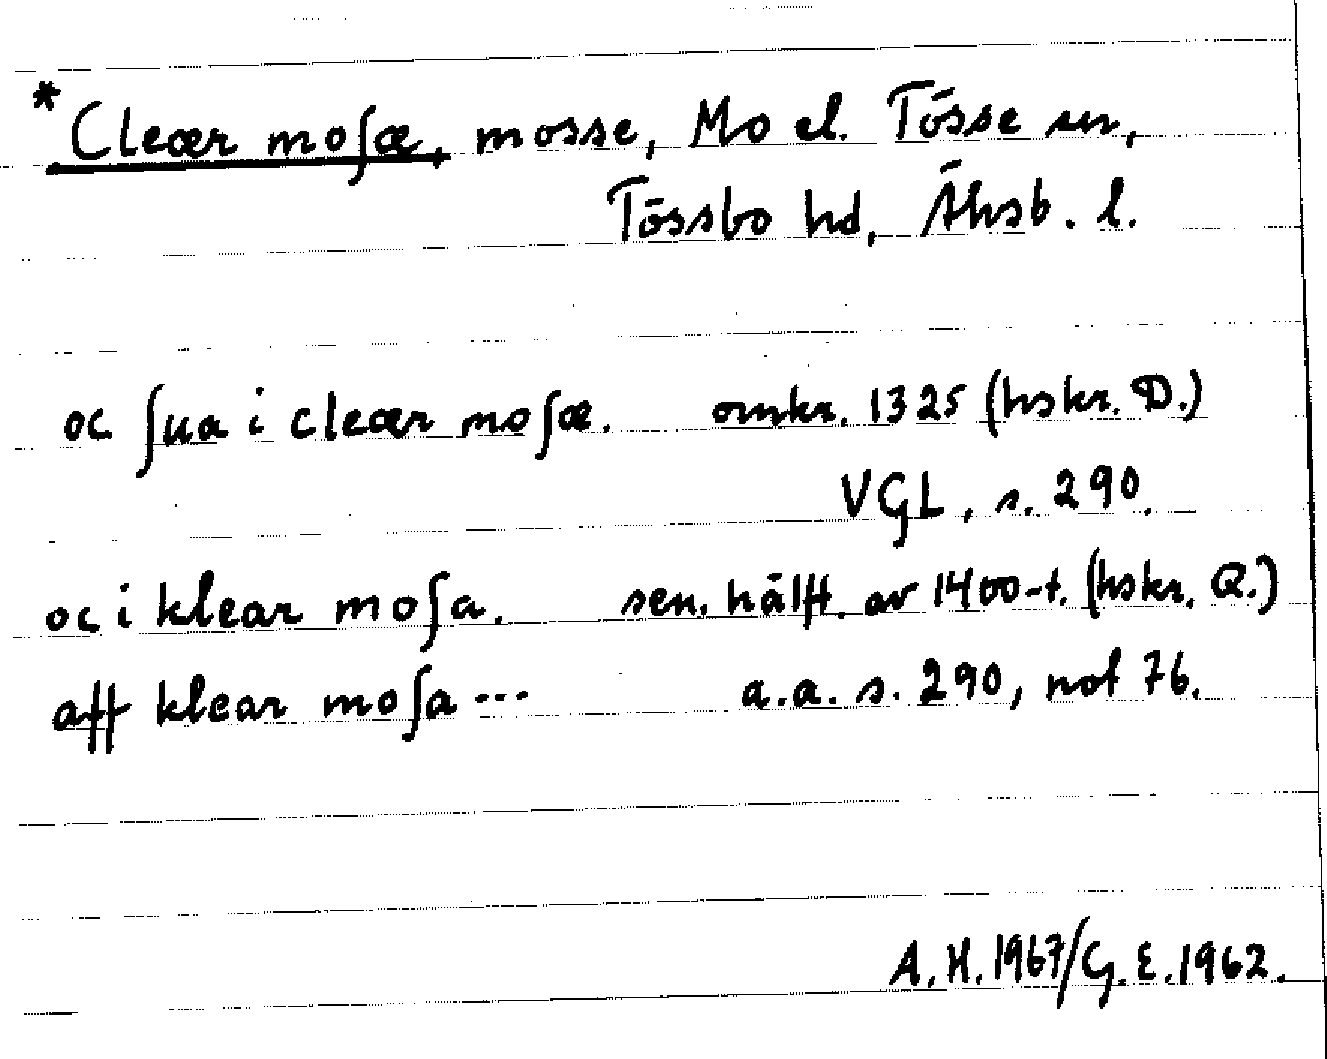 *Cleær moſæ, mosse, Mo el. Tösse sn,
Tössbo hd, Älvsb. l.
oc ſua i cleær moſæ. omkr. 1325 (hskr. D.)
VGL, s. 290.
oc i klear moſa. sen. hälft. av 1400-t. (hskr. Q.)
aff klear moſa... a.a. s. 290, not 76.
A.H. 1967/G.E. 1962.